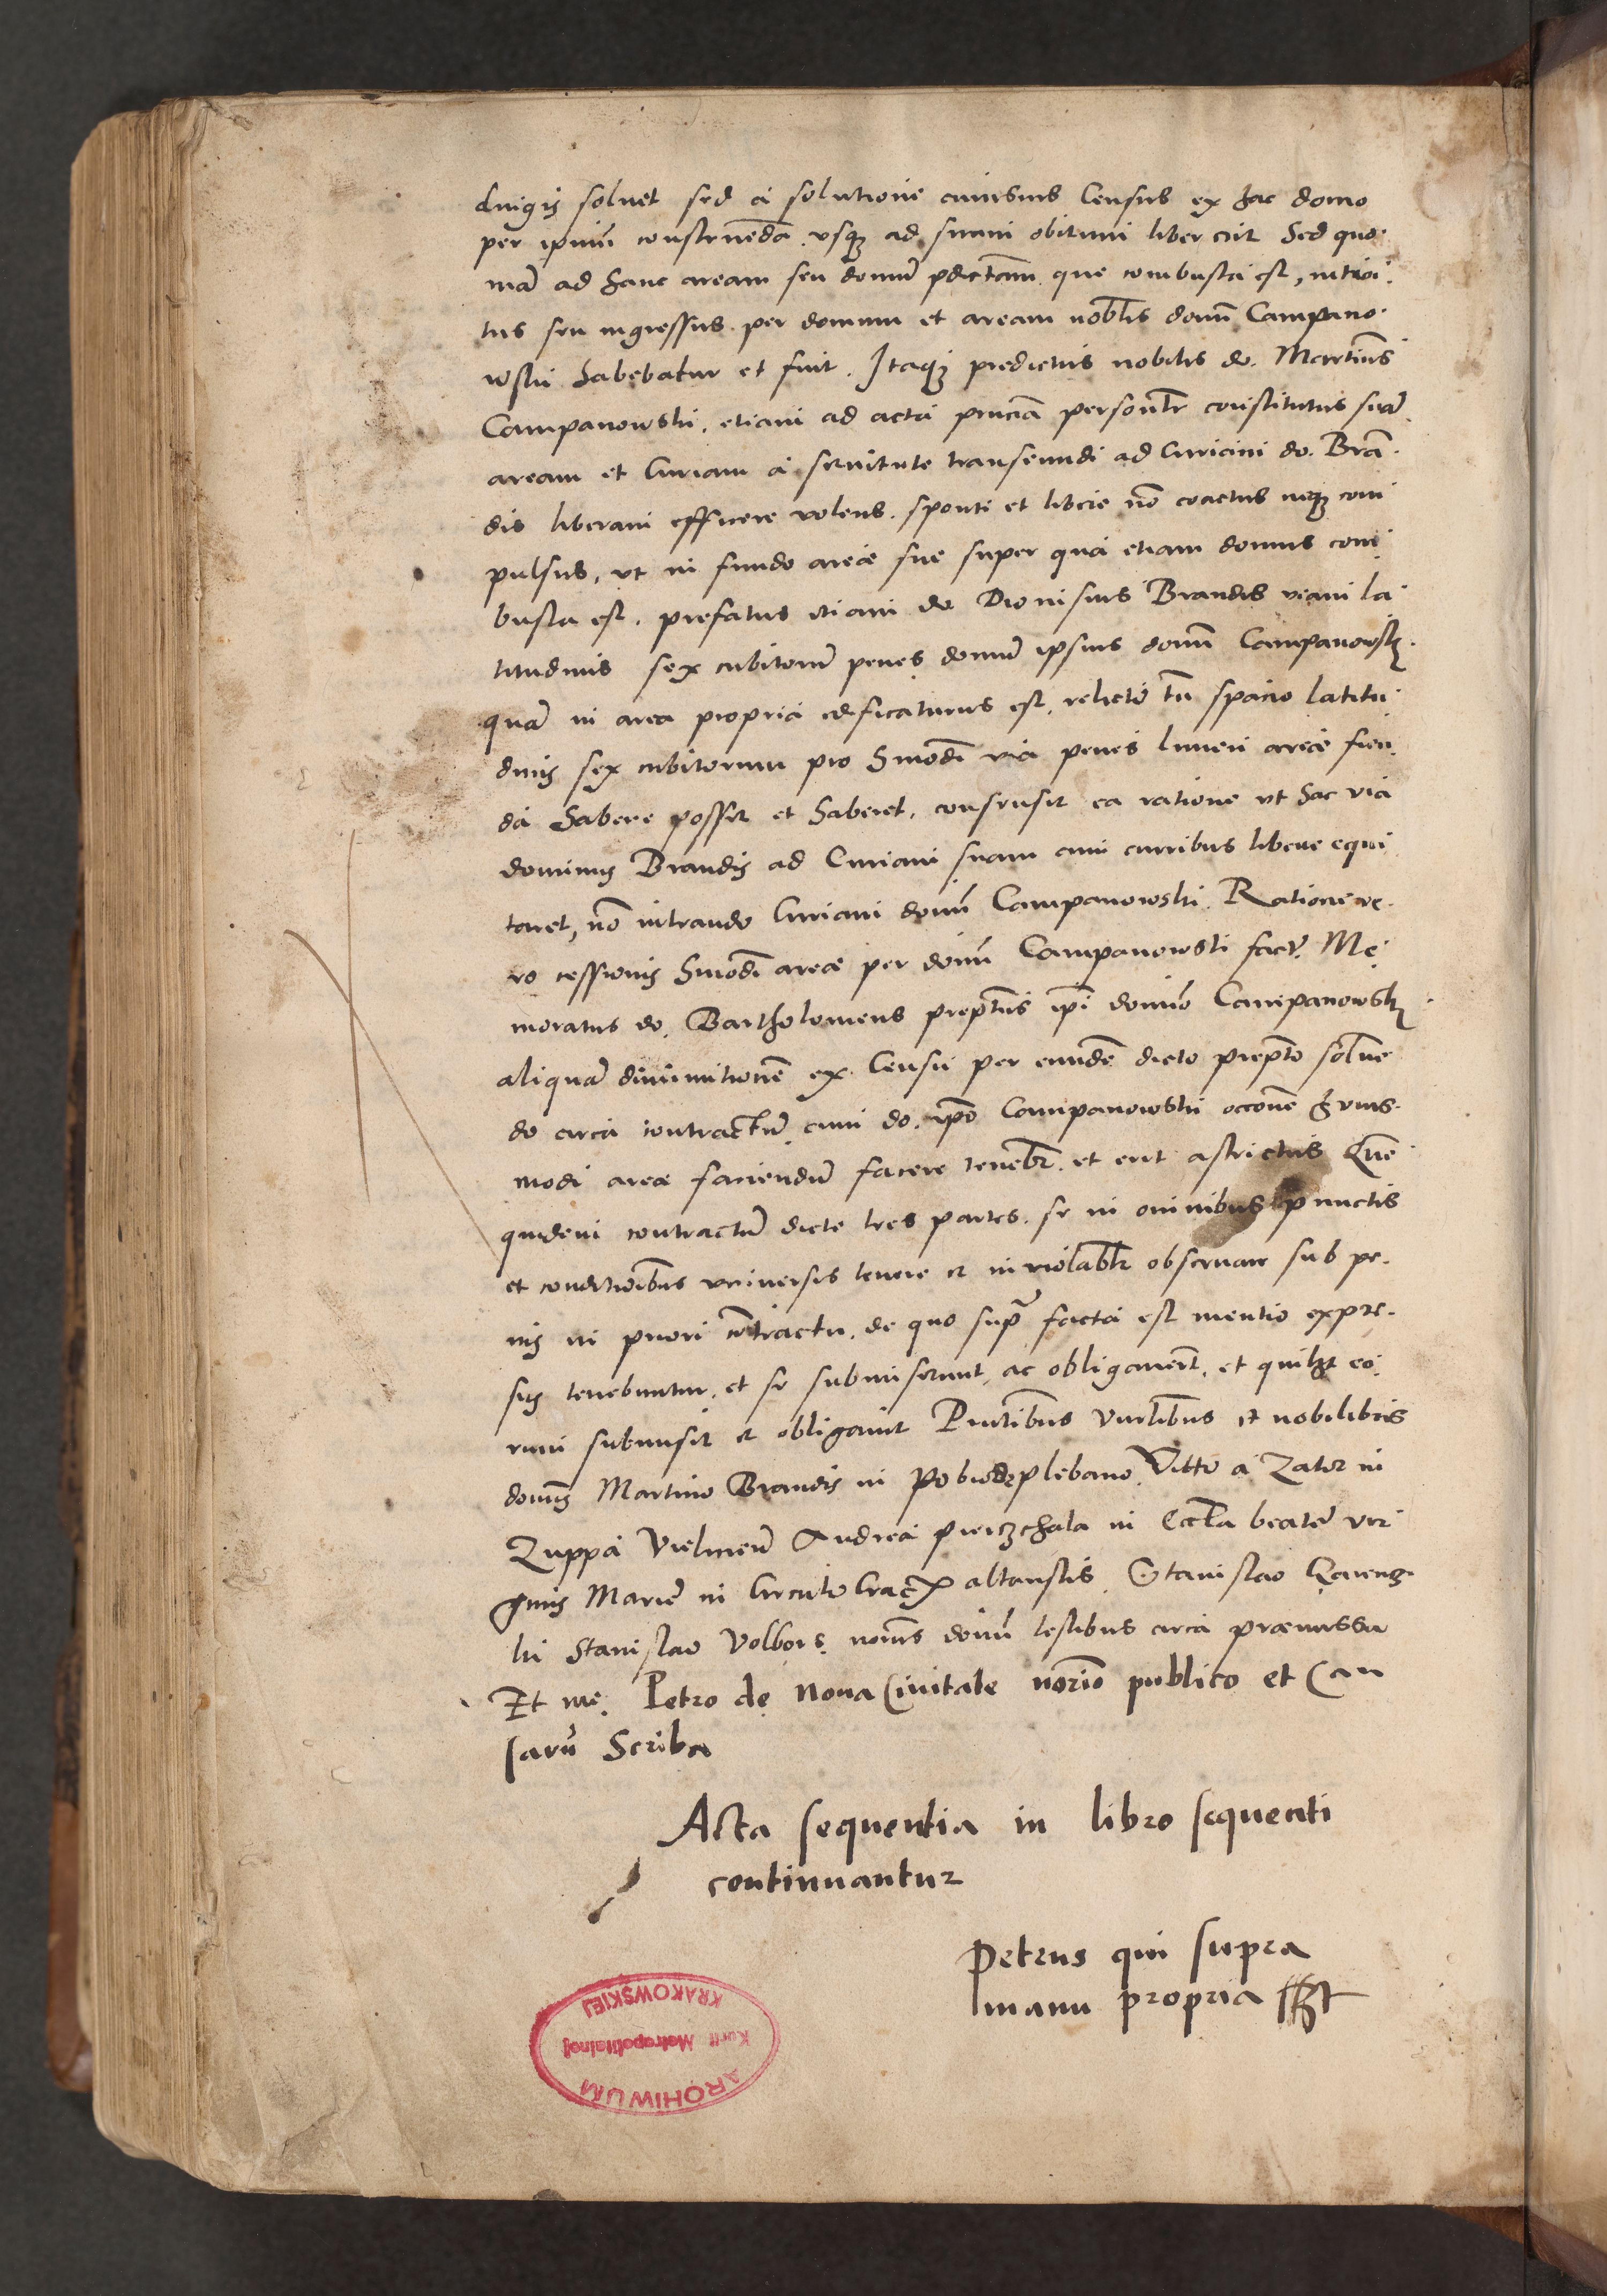 duigis soluet sed a solutione cuiusuis Census ex hac domo
per ipsum construendā vsq3 ad suum obitum liber erit Sed quo
niā ad hanc aream seu domū pdictam que combusta est, introi
tus seu ingressus per domum et aream nobilis domī Campano
wski habebatur et fuit. Itaq3 predictus nobilis do. Martinus
Campanowski, etiam ad acta pnciā personlr constitutus suā
aream et Curiam a seruitute transeundi ad Curiam do. Brā
dis liberam efficere volens. sponte et libere nō coactus neq3 com
pulsus, vt in fundo areae sue super qua etiam domus com
busta est. prefatus etiam do Dionisius Brandis viam la
titudinis sex cubitorū penes domū ipsius domī Campanowsk
quā in area propria edificaturus est, relicto tn spacio latitu
dinis sex cubitorum pro hmōdi via penes limen areae fien
da habere possit et haberet, consensit ea ratione vt hac via
dominus Brandis ad Curiam suam cum curribus libere equi
taret, nō intrando Curiam domī Campanowski. Ratione ve
ro cessionis hmōdi areae per domī Campanowski factę. Me
moratus do. Bartholomeus prepositus ipsi domino Campanowsk
aliquā diminutionē ex Censu per eundē dicto preposito solue
do circa contractū cum do. ipso Campanowski occōne huius
modi areae faciendū facere tenebr. et erit astrictus Quē
quidem contractū dicte tres partes. se in omnibus punctis
et conditiōibus vniuersis tenere et inviolablr obseruare sub pe
nis in priori cōtractu. de quo supra facta est mentio expre
sis tenebuntur. et se submiserunt, ac obligauert. et quilzt eo
rum submisit et obligauit Pntibus Vnrlibus et nobilibus
domīs Martino Brandis in plebano, Vitto a Zator in
Zuppa Vielicien Andrea Pierzchala in Eccla beate vir
ginis Marie in Circulo Crac altaristis. Stanislao
ki Stanislao Volbors, notis domī testibus circa praemissa
Et me. Petro de Noua Ciuitate norio publico et Cau
sarū Scriba
Acta sequentia in libro sequenti
continuantur
Petrus qui supra
manu propria sszt
ARCHIWUM
Kurii Metropolitalnej
KRAKOWSKIEJ